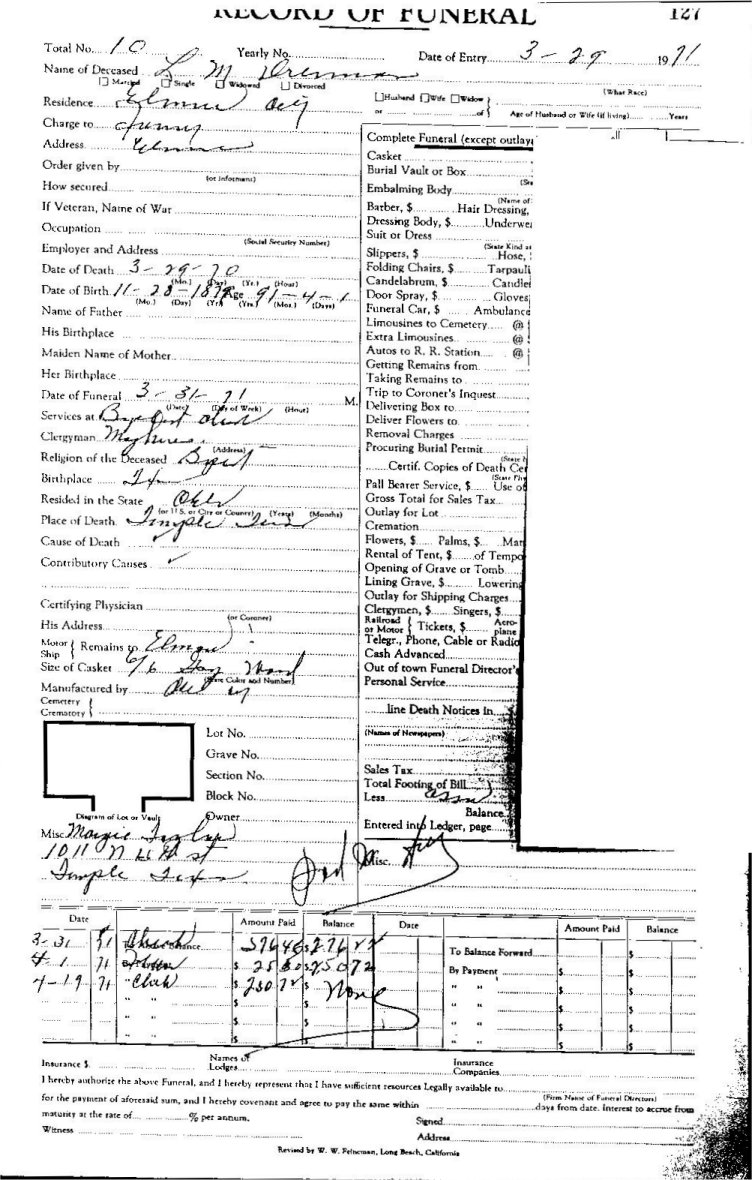 RECORD OF FUNERAL 127
Total No. 10 Yearly No. Date of Entry 3-29 1971
Name of Deceased L M
Married Single Widowed Divorced
Husband Wife Widow (What Race)
Residence
or of Age of Husband or Wife (if living) Years
Charge to
Address
Complete Funeral (except outlay
Casket
Order given by
(or Informant)
Burial Vault or Box
How secured
Embalming Body
(Name of
If Veteran, Name of War
Barber, $ Hair Dressing,
Dressing Body, $ Underwe
Occupation
(Social Security Number)
Suit or Dress
(State Kind a
Employer and Address
Slippers, $ Hose,
Date of Death 3-29-70
(Mo.) (Day) (Yr.) (Hour)
Folding Chairs, $ Tarpauli
Candelabrum, $ Candle
Date of Birth 11-28-1879 Age 91-4-1
(Mo.) (Day) (Yr.) (Yrs.) (Mos.) (Days)
Door Spray, $ Gloves
Name of Father
Funeral Car, $ Ambulance
His Birthplace
Limousines to Cemetery @
Extra Limousines @
Maiden Name of Mother
Autos to R. R. Station @
Her Birthplace
Getting Remains from
Taking Remains to
Date of Funeral 3-31-71 M.
(Date) (Day of Week) (Hour)
Trip to Coroner's Inquest
Services at
Delivering Box to
Deliver Flowers to
Clergyman
(Address)
Removal Charges
Religion of the Deceased
Procuring Burial Permit
(State
Birthplace
Certif. Copies of Death Cer
(State
Pall Bearer Service, $ Use of
Resided in the State Okla
(or U.S. or City or County) (Years) (Months)
Gross Total for Sales Tax
Place of Death Temple Texas
Outlay for Lot
Cremation
Cause of Death
Flowers, $ Palms, $ Mar
Contributory Causes
Rental of Tent, $ of Tempo
Opening of Grave or Tomb
Lining Grave, $ Lowering
Outlay for Shipping Charges
Certifying Physician
(or Coroner)
Clergymen, $ Singers, $
His Address
Railroad or Motor Tickets, $ Aero-plane
Motor Ship Remains to Elmer
Telegr., Phone, Cable or Radio
Cash Advanced
Size of Casket 6/6
(Give Color and Number)
Out of town Funeral Director's
Manufactured by
Personal Service
Cemetery
Crematory
line Death Notices in
Lot No.
(Names of Newspapers)
Grave No.
Section No.
Sales Tax
Total Footing of Bill
Block No.
Less
Balance
Diagram of Lot or Vault Owner
Entered into Ledger, page
Misc. Margie
1011 N
Temple Texas
Misc.
Date Amount Paid Balance Date Amount Paid Balance
3-31 71 $ $
To Balance Forward $
4-1 71 $ 25 $ 250 72
By Payment $ $
4-19 71 $ 250 72 $ None
" " $ $
" " $ $
" " $ $
Insurance $ Names of Lodges Insurance Companies
I hereby authorize the above Funeral, and I hereby represent that I have sufficient resources Legally available to
(Firm Name of Funeral Directors)
for the payment of aforesaid sum, and I hereby covenant and agree to pay the same within days from date. Interest to accrue from
maturity at the rate of % per annum.
Signed
Witness
Address
Revised by W. W. Feineman, Long Beach, California